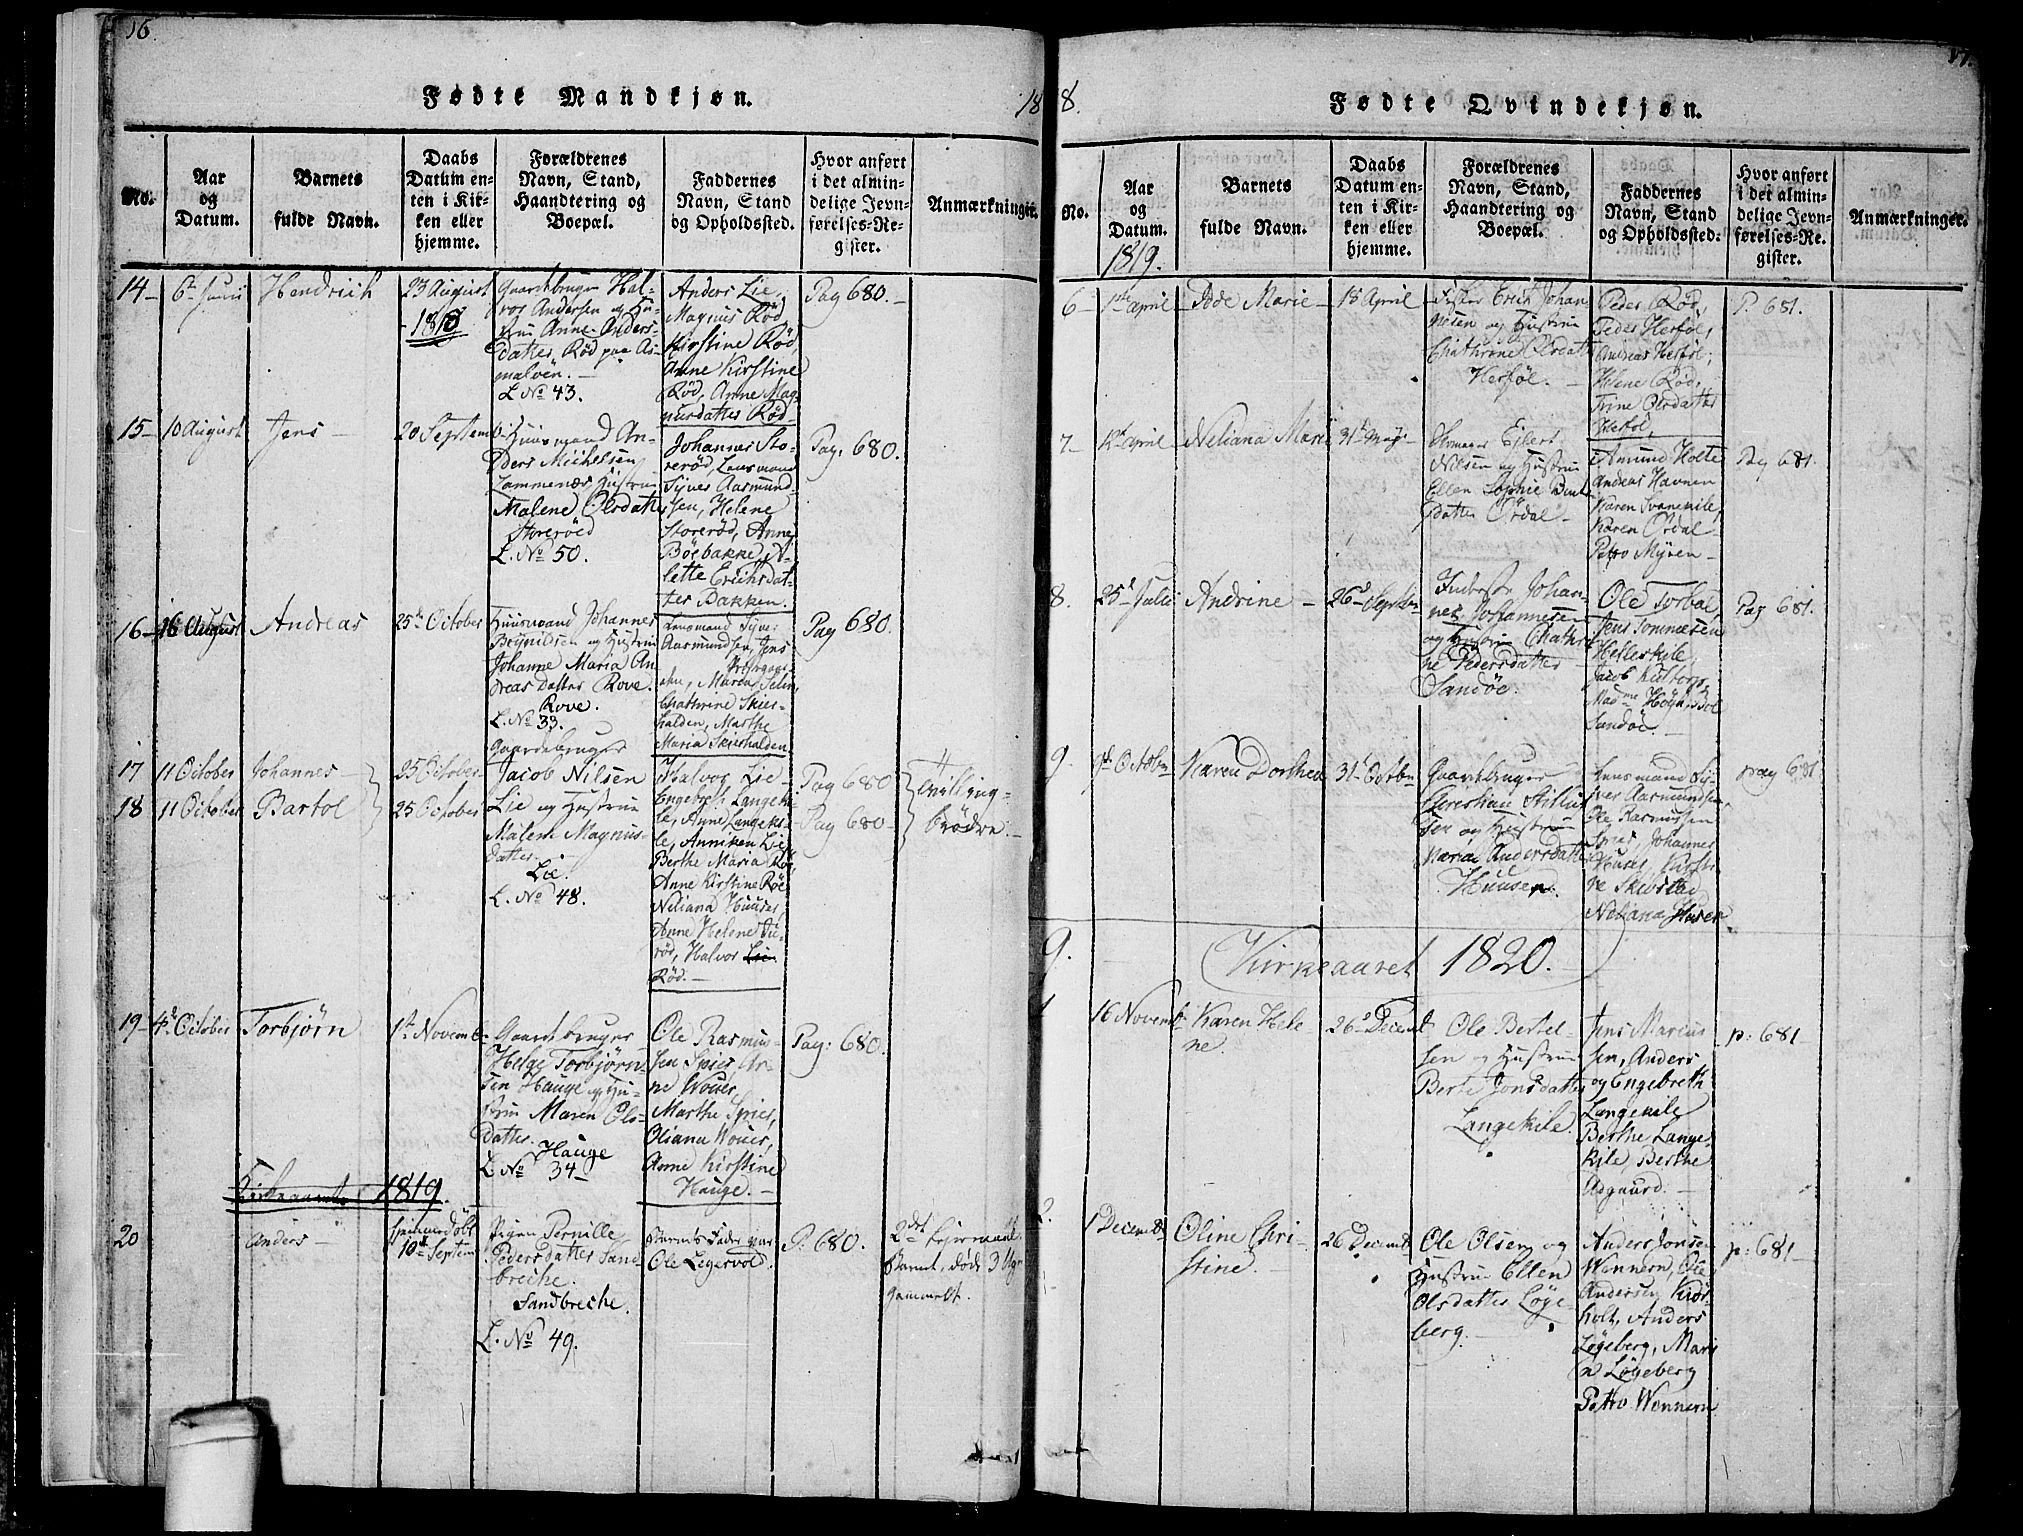 16
Fødte Mandkjøn.
18
No.
Aar
og
Datum.
Barnets
fulde Navn.
Daabs
Datum en-
ten i Kir-
ken eller
hjemme.
Forældrenes
Navn, Stand,
Haandtering og
Boepæl.
Faddernes
Navn, Stand
og Opholdssted.
Hvor anført
i det almin-
delige Jevn-
førelses-Re-
gister.
Anmærkninger.
14 –
6te Juni
Hendrich
23 August
1818
Gaardbruger Hal-
vor Andersen og Hu-
stru Anne Anders-
datter Rød paa As-
malöen. –
L No 43.
Anders Lie,
Magnus Rød
Kirstine Rød,
Anne Kirstine
Rød, Anne Mag-
nusdatter Rød
Pag 680. –
15 –
10 August
Jens –
20 Septemb.
Huusmand An-
ders Michelsen
Hustrue
Malene Olsdatter
Storerød
L. No 50.
Johannes Sto-
rerød, Lensmand
Syver Aasmund-
sen, Helene
Storerød, Anne
Böebakke, A-
lette Erichsdat-
ter Bakken.
Pag. 680.
16 –
16 August
Andreas
25de October
Huusmand Johannes
Brynildsen og Hustrue
Johanne Maria An-
dreas datter Rove.
Rove.
L. No 33.
Lensmand Syver
Aasmundsen, Jens
Chathrine Skiers-
halden, Marthe
Maria Skiershalden
Pag 680.
17
11 October
Johannes –
25 October
18
11 October
Bartol
25 October
Gaardebruger
Jacob Nilsen
Lie og Hustrue
Malene Magnus-
datter. –
Lie.
L. No 48.
Halvor Lie –
Engebreth Langeki-
le, Anne Langeki-
le, Anniken Lie,
Berthe Maria Rød
Anne Kirstine Röe
Neliana Huuser,
Anne Helene Tu-
rød, Halvor Lie
Rød. –
Pag 680
Pag 680 –
Tvilling-
brödre. –
19 –
4de October
Torbjørn
1ste Novemb.
Gaardbruger
Helge Torbjørn-
sen Hauge og Hu-
strue Maren Ols-
datter.
Hauge
L No 34 –
Ole Rasmus-
sen Spier, An-
ne Wouer,
Marthe Spier,
Oliana Wouer,
Anne Kirstine
Hauge. –
Pag: 680.
Kirkeaaret 1819.
20
Anders –
hjemmedöbt
10de Septem
Pigen Pernille
Peders datter Sand-
breche.
Sandbreche.
L. No 49.
Barnets Fader var
Ole Legervold.
P. 680.
2det Leiermaal.
Barnet döde 3 Uger
gammelt.
8.
17.
Fødte Qvindekjøn.
No.
Aar
og
Datum.
1819.
Barnets
fulde Navn.
Daabs
Datum en-
ten i Kir-
ken eller
hjemme.
Forældrenes
Navn, Stand,
Haandtering og
Boepæl.
Faddernes
Navn, Stand
og Opholdssted.
Hvor anført
i det almin-
delige Jevn-
førelses-Re-
gister.
Anmærkninger.
6 –
1ste April
Marie –
18 April
Fisker Erich Johan-
nesen og Hustrue
Chathrine Olsdatter
Herföl. –
Peder Rød,
Peder Herföl,
Andreas Herföl,
Helene Rød,
Trine Olsdatter
Herföl,
P. 681.
7 –
12te April
Neliana Marie
31te May –
Ejlert
Nilsen og Hustrue
Ellen Sophie Bent
datter Ørdal –
Amund Holte
Andreas Havnen
Karen Svanekile,
Karen Ørdal –
Petro Myren –
Pag 681.
8.
25de Julii
Andrine –
26de Septbr
Inderste Johan-
nes Johannesen
og Hustrue Chathri-
ne Pedersdatter
Sandøe.
Ole Torbal,
Jens Tommesen
Helleskile,
Jacob Kultorp,
Madme Höyd, Bol
Sandøe. –
Pag 681.
9.
9de October
Karen Dorthea
31te Octobr
Gaardbruger
Christian
sen og Hustrue
Maria Andersdatter
Huuser.
Lensmand Sy-
ver Aasmundsen,
Ole Rasmussen
Spier, Johannes
Huser, Kirsti-
ne Skibstad
Neliana Huser
pag 681.
9.
Kirkeaaret 1820. –
1
16 Novemb.
Karen Hele
ne.
26de Decemb
Ole Bertel-
sen og Hustrue
Berte Jonsdatter
Langekile.
Jens Marius
sen, Anders
og Engebreth
Langekile
Berthe Lange-
kile, Berthe
Asgaard. –
p: 681 –
2.
1 Decemb
Oline Chri-
stine. –
26 Decemb
Ole Olsen og
Hustrue Ellen
Olsdatter Løge-
berg. –
Anders Jonsen
Wennern, Ole
Andersen Kjør-
holt, Anders
Løgeberg, Mari
n Løgeberg
Petro Wennern
p: 681 –